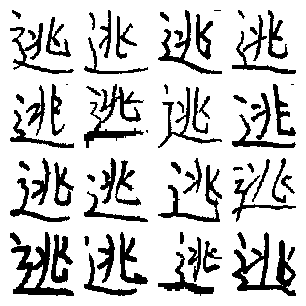 逃逃逃逃
逃逃逃逃
逃逃逃逃
逃逃逃逃